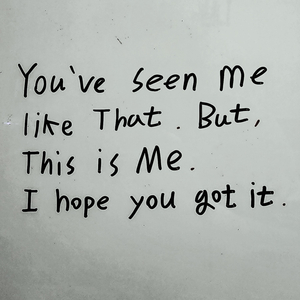 You've seen me
like That. But,
This is Me.
I hope you got it.